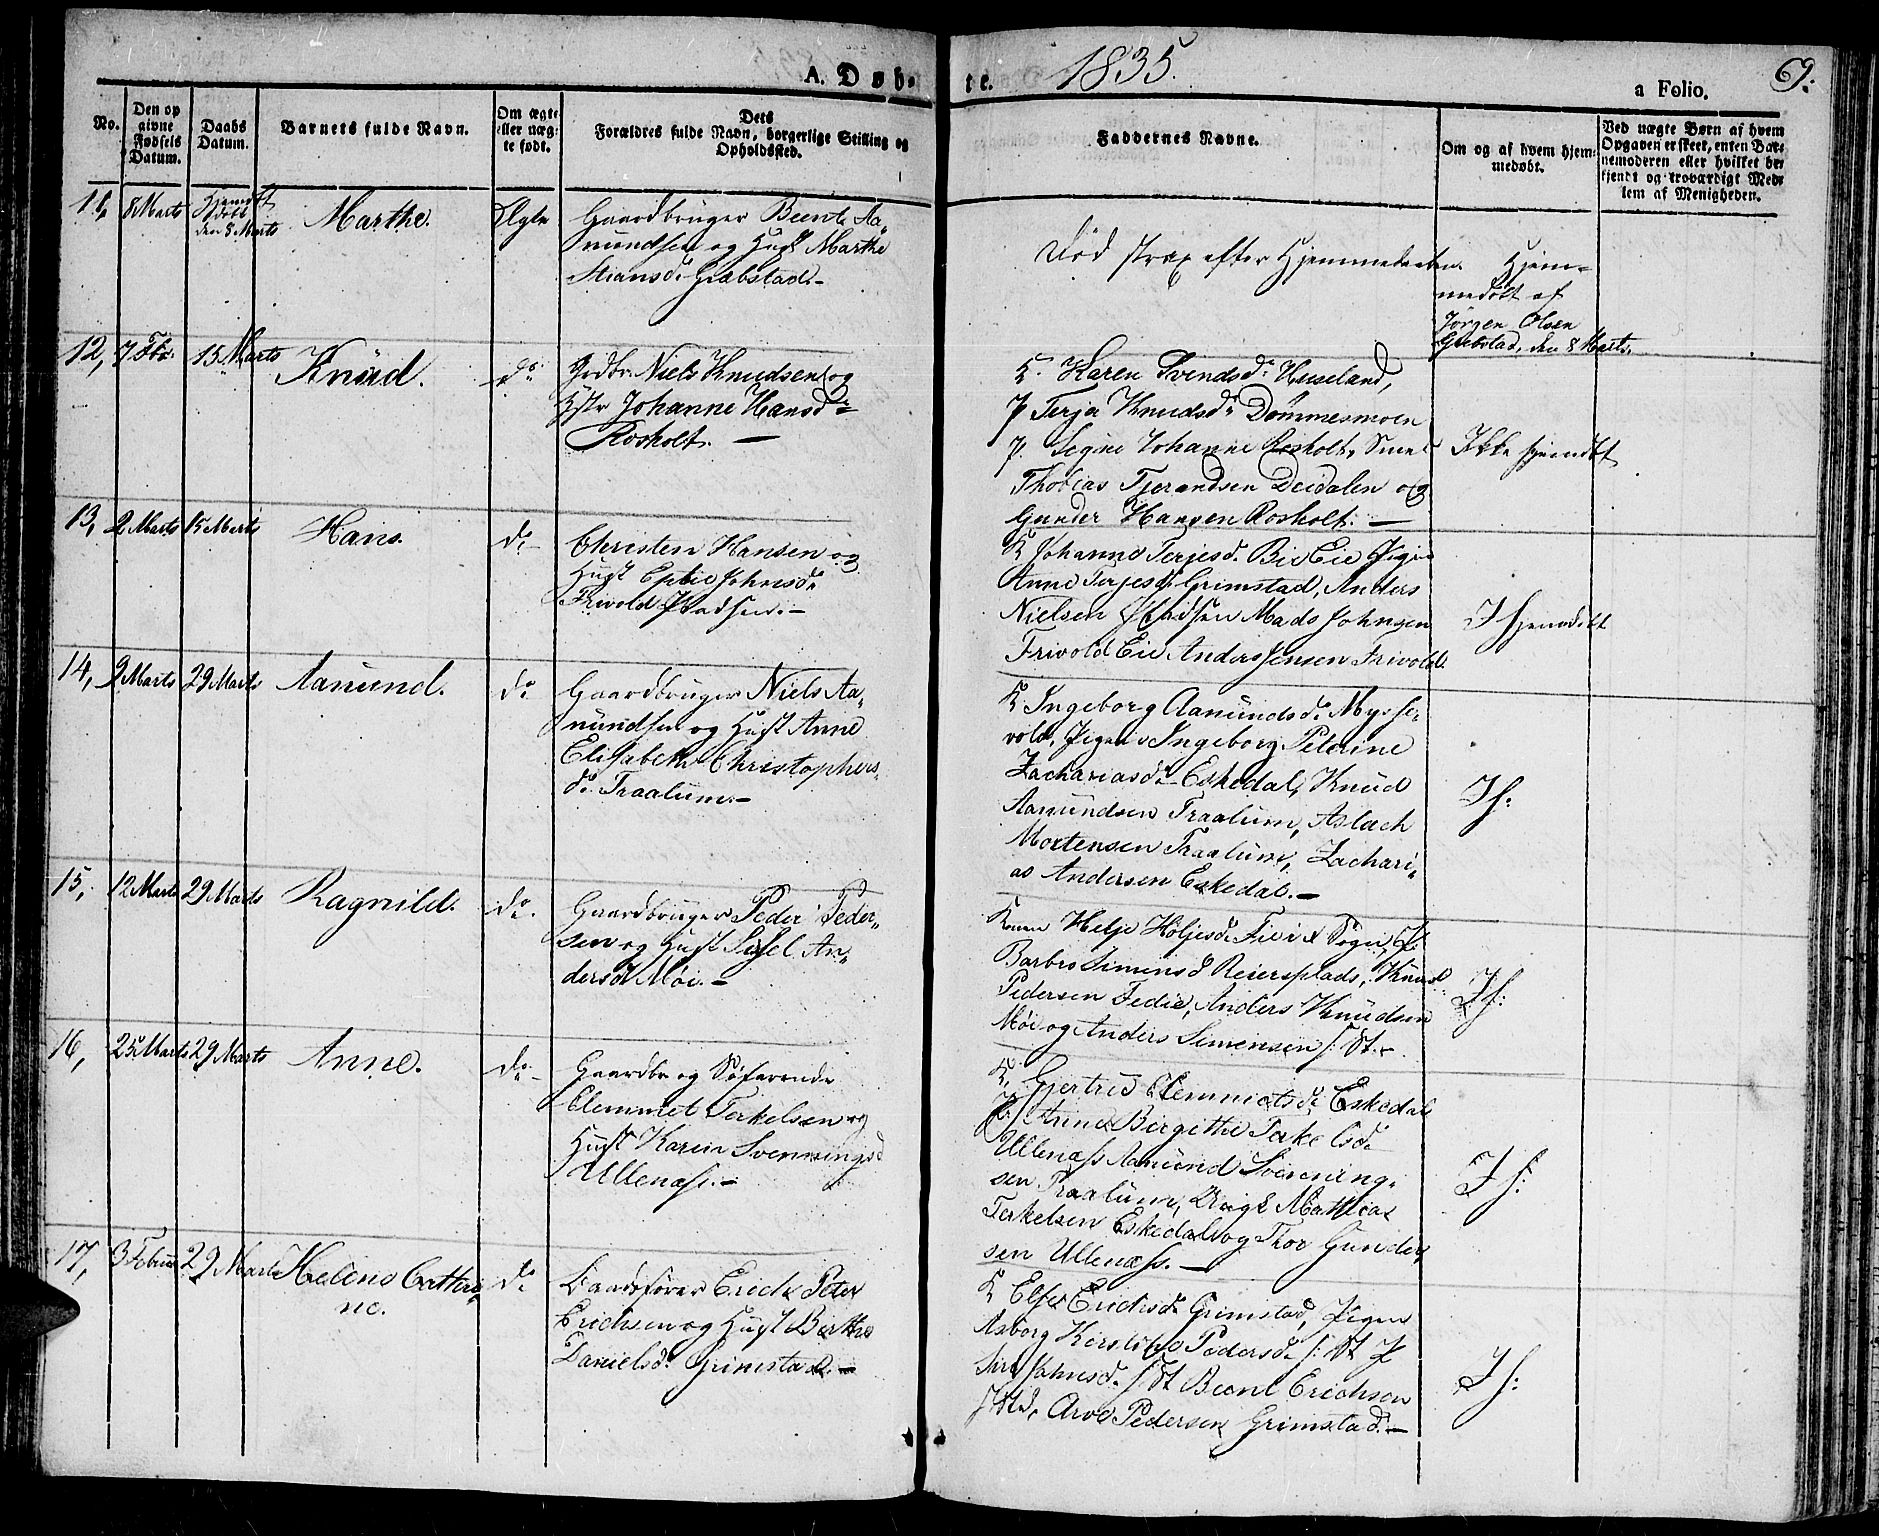 A. Døb-
te.
1835.
a Folio.
69.
No.
Den op
givne
Fødsels
Datum.
Daabs
Datum.
Barnets fulde Navn.
Om ægte
eller uæg-
te født.
Dets
Forældres fulde Navn, borgerlige Stilling og
Opholdssted.
Faddernes Navne.
Om og af hvem hjem-
medøbt.
Ved uægte Børn af hvem
Opgaven er skeet, enten Bar-
nemoderen eller hvilket be-
kjendt og troværdigt Med-
lem af Menigheden.
11, 8 Marts
den 8 Marts
Marthe.
Ægte
Gaardbruger Bent Aa-
nundsen og Hust Marthe
Stiansd. Grebstad.-
Død strax efter Hjemmedaaben.
Hjem-
medøbt af
Jørgen Olsen
Grebstad, den 8 Marts.
12, 7 Fbr. 15 Marts
Knud.
do
Grdbr. Niels Knudsen og
Hstr Johanne Hansd.
Rosholt. -
K. Karen Svendsd. Huseland,
P. Terje Knudsd. Dømmesmoen
P. Signe Johanne Rosholt,
Thobias Tjerandsen Dedalen og
Gunder Hansen Rosholt. -
Ikke hjemdøbt
13, 2 Marts 15 Marts
Hans.
do
Christen Hansen og
Hust Johnsd.
Frivold
K Johanne Terjesd. Bie Eie Pigen
Anne Terjesd. Grimstad, Anders
Nielsen Mads Johnsen
Frivold Eie Anders Jensen Frivold.
I Hjemdøbt
14, 9 Marts 29 Marts
Aanund.
do
Gaardbruger Niels Aa-
nundsen og Hust Anne
Elisabeth Christophers-
d. Traalum.-
K. Ingeborg Aanundsd. Mysse-
vold, Pigen Ingeborg Peterine
Zachariasd. Eskedal, Knud
Aanundsen Traalum, Aslach
Mortensen Traalum, Zachari-
as Andersen Eskedal. -
I H:
15, 12 Marts 29 Marts
Ragnild.
do
Gaardbruger Peder Peder-
sen og Hust Sissel An-
dersd Møi. -
Konen Helje Holjesd. Sogn, P.
Barbro Simensd Reiersplads, Knud
Pedersen Fedie, Anders Knudsen
Møi og Anders Simensen
I H:
16, 25 Marts 29 Marts
Anne.
do
Gaardbr og Søfarende
Clemmet Terkelsen og
Hust Karen Svenningsd
Ullenæss. -
K. Gjertrud Clemmetsd. Eskedal
P. Anne Birgithe Terkelsd.
Ullenæss Aanund Svenning-
sen Traalum, Mathias
Terkelsen Eskedal og Thor Gunder-
sen Ullenæss. -
I H:
17, 3 Februar 29 Marts
Helene Cathri-
ne.
do
Baadsfører Erick Peter
Erichsen og Hust Berthe
Danielsd. Grimstad. -
K Else Erichsd. Grimstad, Pigen
Asborg Kirstine Pedersd. P
Johnsd. Bent Erichsen
Arve Pedersen Grimstad. -
I H: